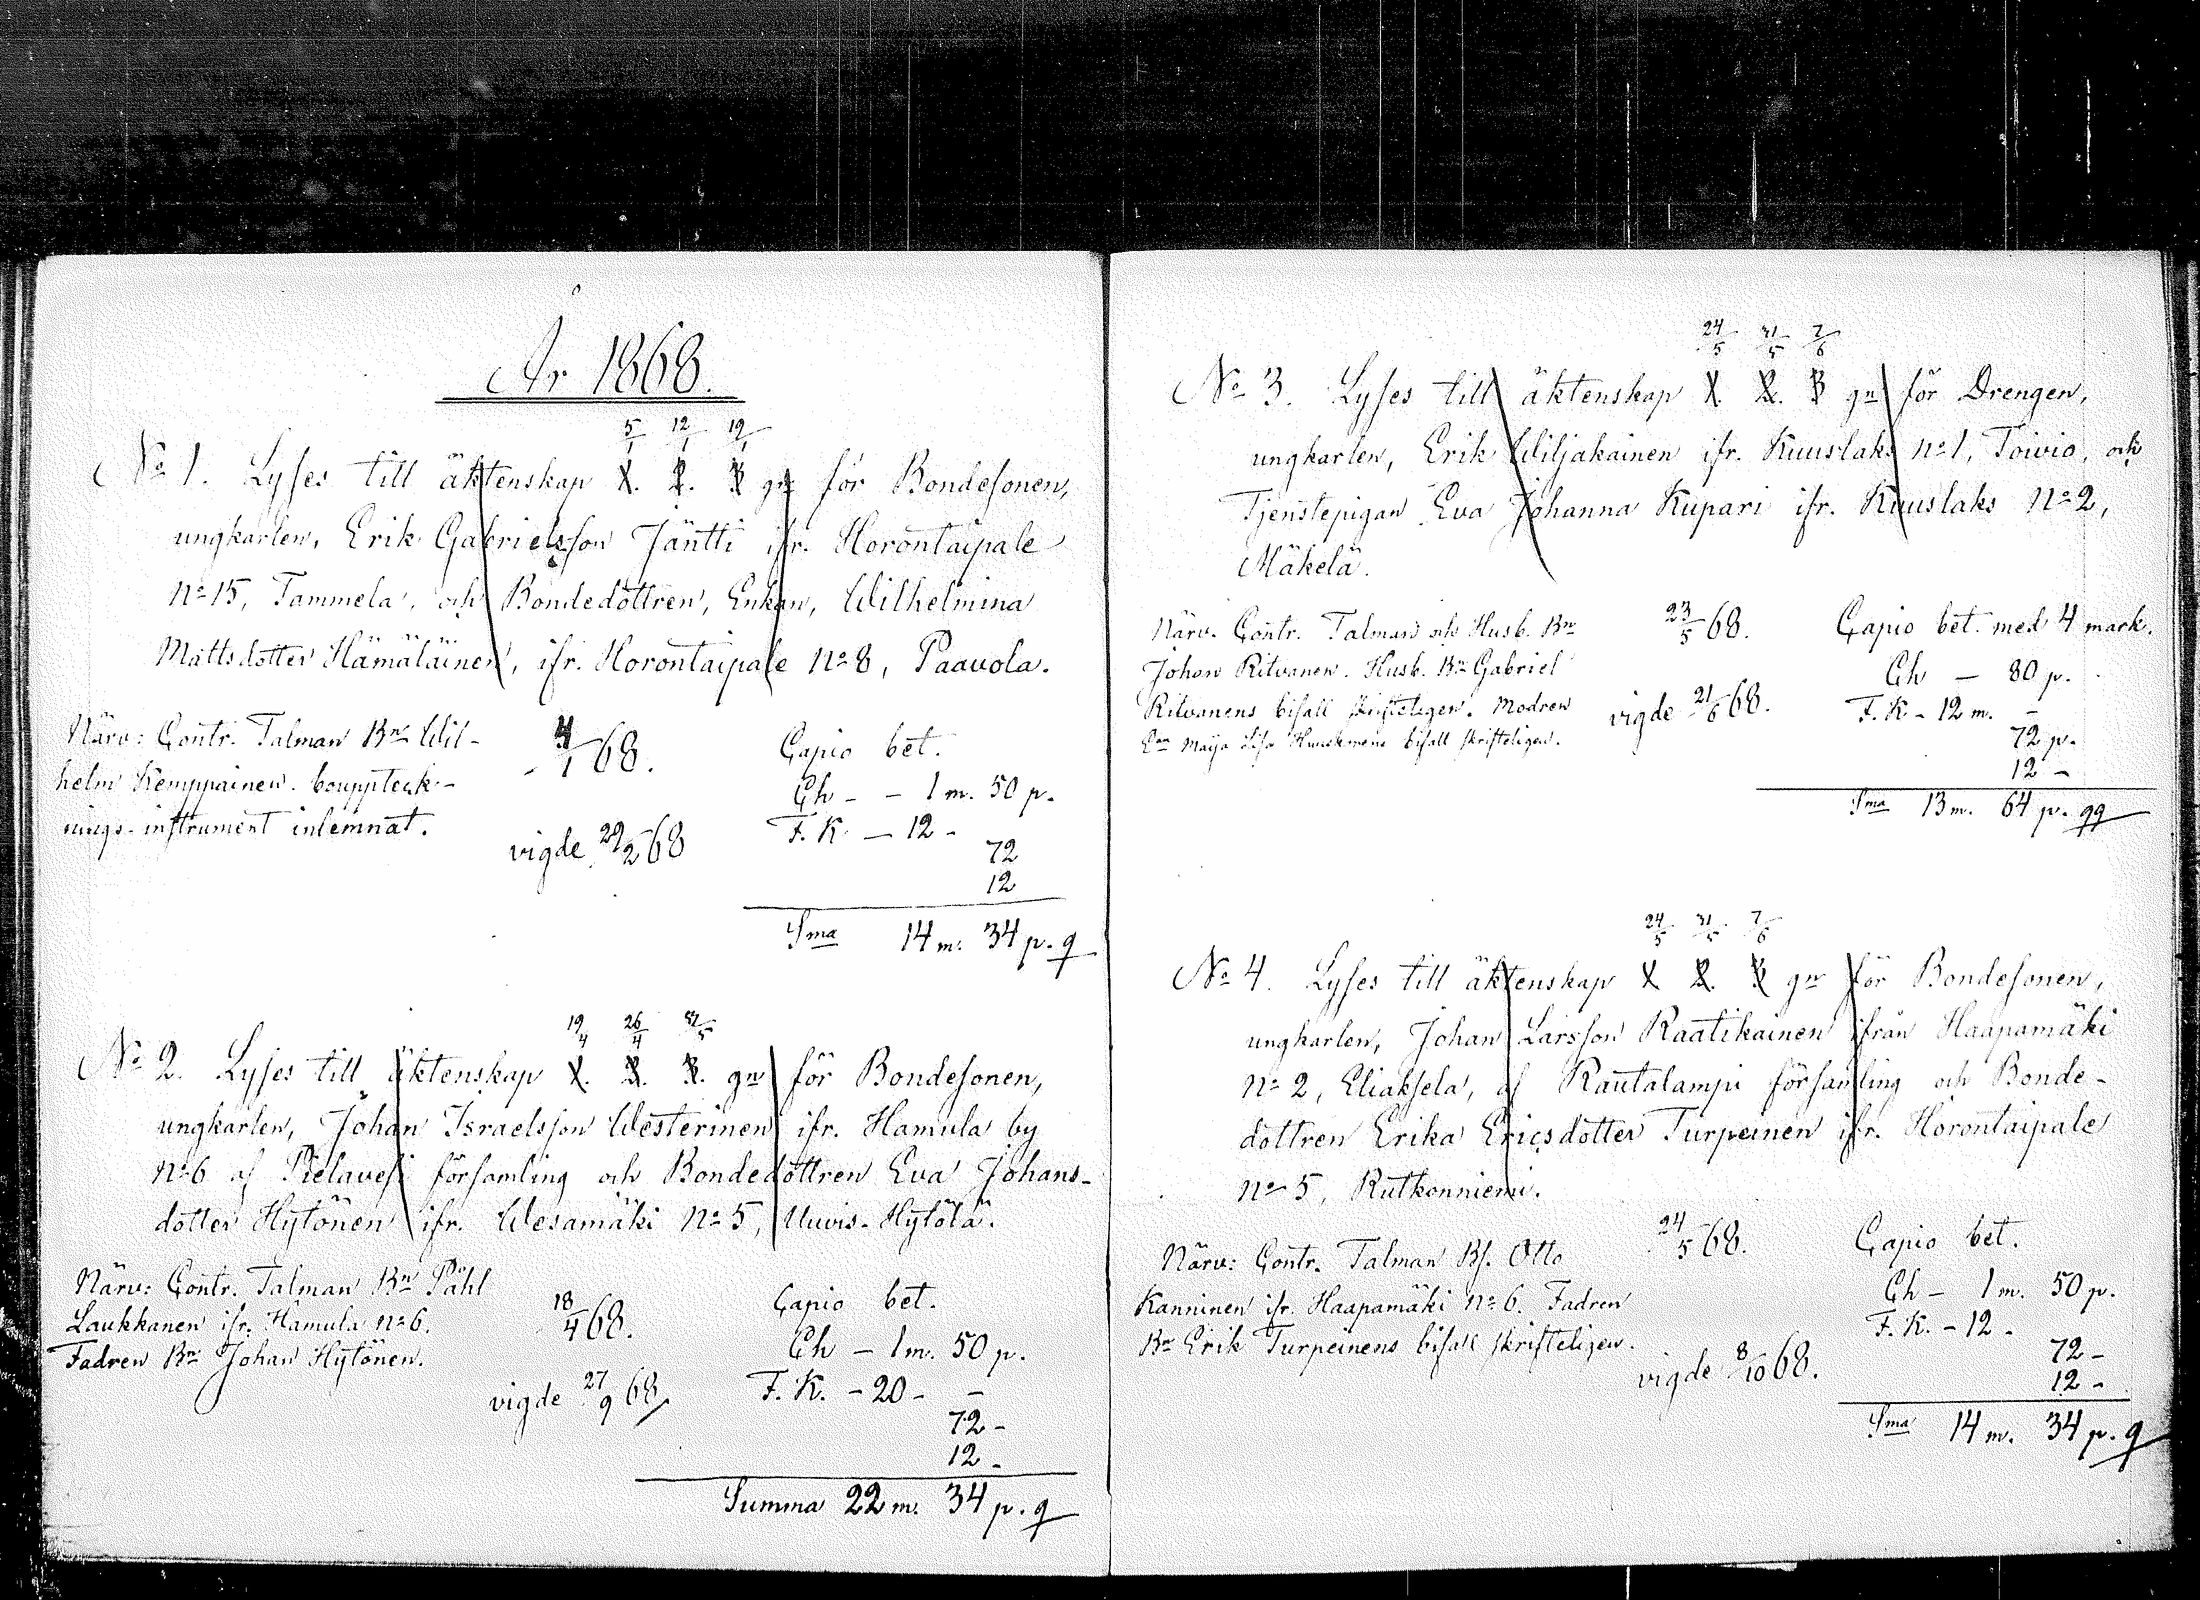 År 1868.
5/1 12/1 19/1
No 1. Lyses till äktenskap 1. 2. 3 gn för Bondesonen,
ungkarlen, Erik Gabrielsson Jäntti ifr. Horontaipale
No 15, Tammela, och Bondedottren, Enkan, Wilhelmina
Mattsdotter Hämäläinen, ifr. Horontaipale No 8, Paavola.
Närv: Contr. Talman Bn Wil-
helm Kemppainen. bouppteck-
nings-instrument inlemnat.
4/1 68.
vigde 29/2 68
Capio bet.
Ch - - 1 m. 50 p.
F. K - 12 -
72
12
Sma 14 m. 34 p.
19/4 26/4 3/5
No 2. Lyses till äktenskap 1. 2. 3. gn för Bondesonen,
ungkarlen, Johan Israelsson Westerinen ifr. Hamula by
No 6 af Pielavesi församling och Bondedottren Eva Johans-
dotter Hytönen ifr. Wesamäki No 5, Uuvis-Hytölä.
Närv: Contr. Talman Bn Påhl
Laukkanen ifr. Hamula No 6.
Fadren Bn Johan Hytönen.
18/4 68.
vigde 27/9 68
Capio bet.
Ch - 1 m. 50 p.
F. K. - 20 - -
72 -
12 -
Summa 22 m. 34 p.
24/5 31/5 7/6
No 3. Lyses till äktenskap 1. 2. 3 gn för Drengen,
ungkarlen, Erik Wiljakainen ifr. Kuuslaks No 1, Toivio, och
Tjenstepigan Eva Johanna Kupari ifr. Kuuslaks No 2,
Mäkelä.
Närv. Contr. Talman och Husb. Bn
Johan Ritvanen. Husb. Bn Gabriel
Ritvanens bifall skrifteligen. Modren
Maija Lisa bifall skrifteligen.
23/5 68.
vigde 21/6 68.
Capio bet. med 4 mark.
Ch - 80 p.
F. K - 12 m. -
72 p.
12 -
Sma 13 m. 64 p.
24/5 31/5 7/6
No 4. Lyses till äktenskap 1 2. 3 gn för Bondesonen,
ungkarlen, Johan Larsson Raatikainen ifrån Haapamäki
No 2, Eliaksela, af Rautalampi församling och Bonde-
dottren Erika Ericsdotter Turpeinen ifr. Horontaipale
No 5, Rutkonniemi.
Närv: Contr. Talman Bs. Otto
Kanninen ifr. Haapamäki No 6. Fadren
Bn Erik Turpeinens bifall skrifteligen.
24/5 68.
vigde 8/10 68.
Capio bet.
Ch - 1 m. 50 p.
F. K. - 12 -
72 -
12 -
Sma 14 m. 34 p.